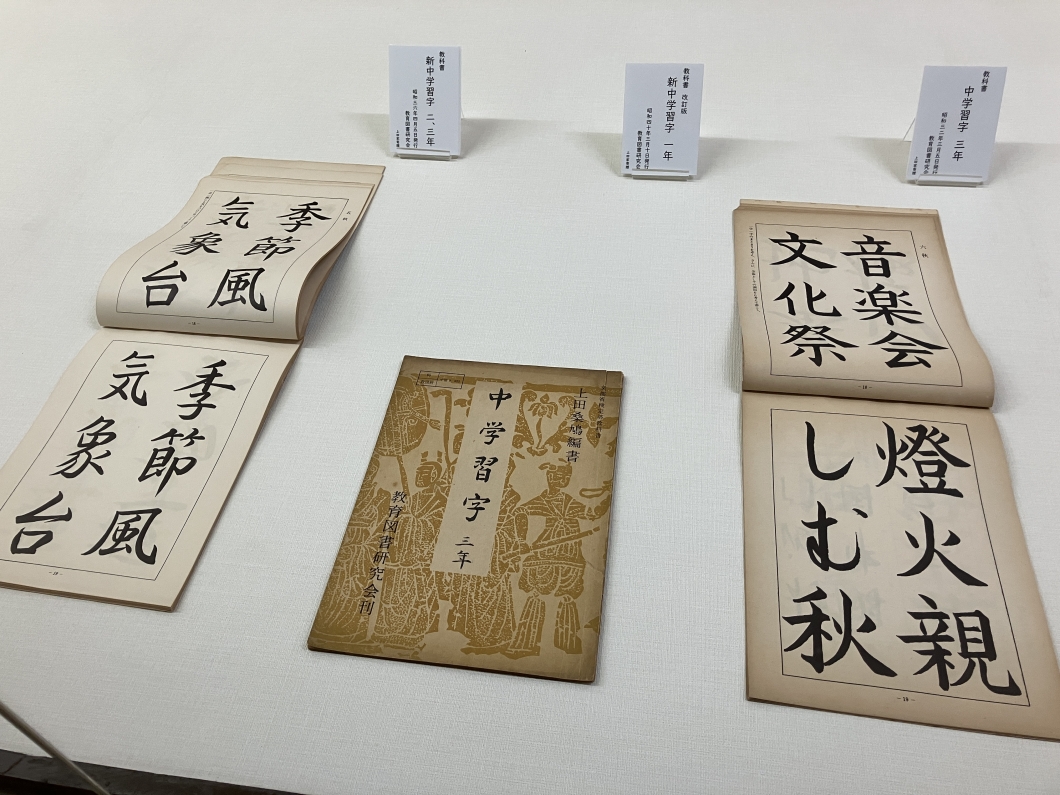 教科書
新中学習字 二、三年
昭和三六年四月五日発行
教育図書研究会
教科書 改訂版
新中学習字 一年
昭和四十年三月十日発行
教育図書研究会
教科書
中学習字 三年
昭和三二年三月五日発行
教育図書研究会
季節風
気象台
季節風
気象台
上田桑鳩編書
中学習字 三年
教育図書研究会刊
六 秋
音楽会
文化祭
燈火親
しむ秋